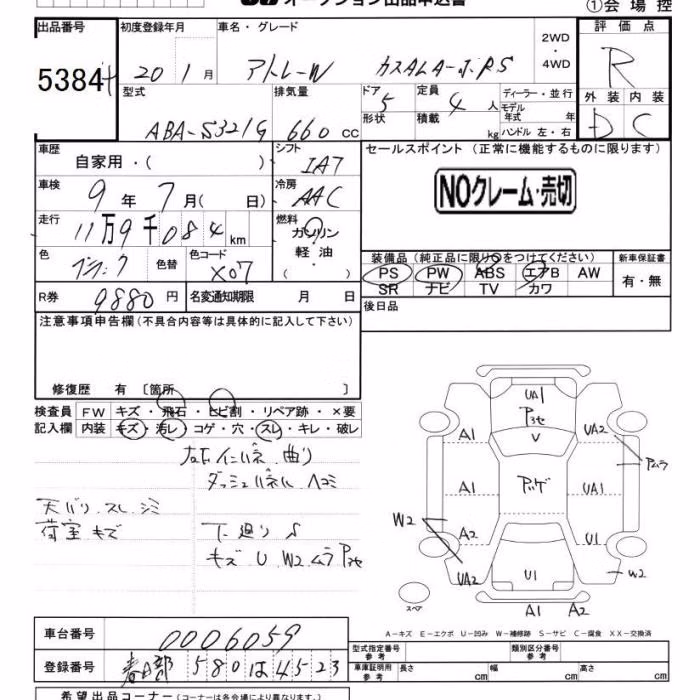 オークション出品申込書
①会場控
出品番号 初度登録年月 車名・グレード 2WD・4WD 評価点
5384 20 1月 アトレーW カスタムターボRS R
型式 排気量 ドア 5 定員 4人 ディーラー・並行 外装 内装
形状 積載 kg モデル年式 年 ハンドル 左・右
ABA-S321G 660cc D C
車歴 自家用・( ) シフト IAT
セールスポイント (正常に機能するものに限ります)
NOクレーム・売切
車検 9年 7月( 日) 冷房 AAC
走行 11万9千084km 燃料 ガソリン 軽油・( )
色 ブラック 色替 色コード X07
装備品(純正品に限り○をつけてください) 新車保証書
PS PW ABS エアB AW 有・無
SR ナビ TV カワ
R券 9880円 名変通知期限 月 日 後日品
注意事項申告欄(不具合内容等は具体的に記入して下さい)
修復歴 有 〔箇所 〕
検査員 FW キズ・飛石・ヒビ割・リペア跡・×要
記入欄 内装 キズ・汚レ・コゲ・穴・スレ・キレ・破レ
インパネ 曲り
ダッシュパネル ヘコミ
天バリ スレ シミ
荷室 キズ 下廻り S
キズ U W2 ムラ
UA1
A1 V UA2
ムラ
A1 UA1
W2 A2 U1
UA2 U1 W2
スペア A1 A2
A-キズ E-エクボ U-凹み W-補修跡 S-サビ C-腐食 XX-交換済
車台番号 0006059
型式指定番号 参考 類別区分番号 参考
登録番号 春日部 580 は 4523
車庫証明用 参考 長さ cm 幅 cm 高さ cm
希望出品コーナー(コーナーは各会場により異なります。)